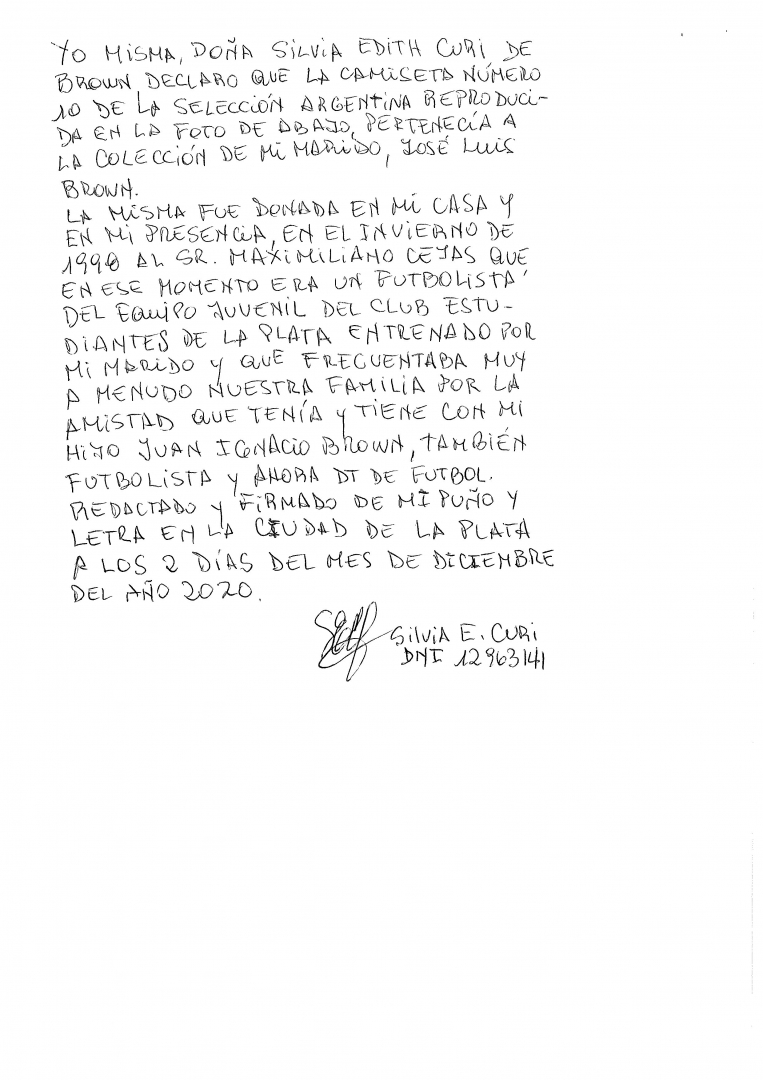 YO MISMA, DOÑA SILVIA EDITH CURI DE
BROWN, DECLARO QUE LA CAMISETA NÚMERO
10 DE LA SELECCIÓN ARGENTINA REPRODUCI-
DA EN LA FOTO DE ABAJO, PERTENECÍA A
LA COLECCIÓN DE MI MARIDO, JOSÉ LUIS
BROWN.
LA MISMA FUE DONADA EN MI CASA Y
EN MI PRESENCIA, EN EL INVIERNO DE
AL SR. MAXIMILIANO CEJAS QUE
EN ESE MOMENTO ERA UN FUTBOLISTA
DEL EQUIPO JUVENIL DEL CLUB ESTU-
DIANTES DE LA PLATA ENTRENADO POR
MI MARIDO Y QUE FRECUENTABA MUY
A MENUDO NUESTRA FAMILIA POR LA
AMISTAD QUE TENÍA Y TIENE CON MI
HIJO JUAN IGNACIO BROWN, TAMBIÉN
FUTBOLISTA Y AHORA DT DE FUTBOL.
REDACTADO Y FIRMADO DE MI PUÑO Y
LETRA EN LA CIUDAD DE LA PLATA
A LOS 2 DÍAS DEL MES DE DICIEMBRE
DEL AÑO 2020.
SILVIA E. CURI
DNI 12963141